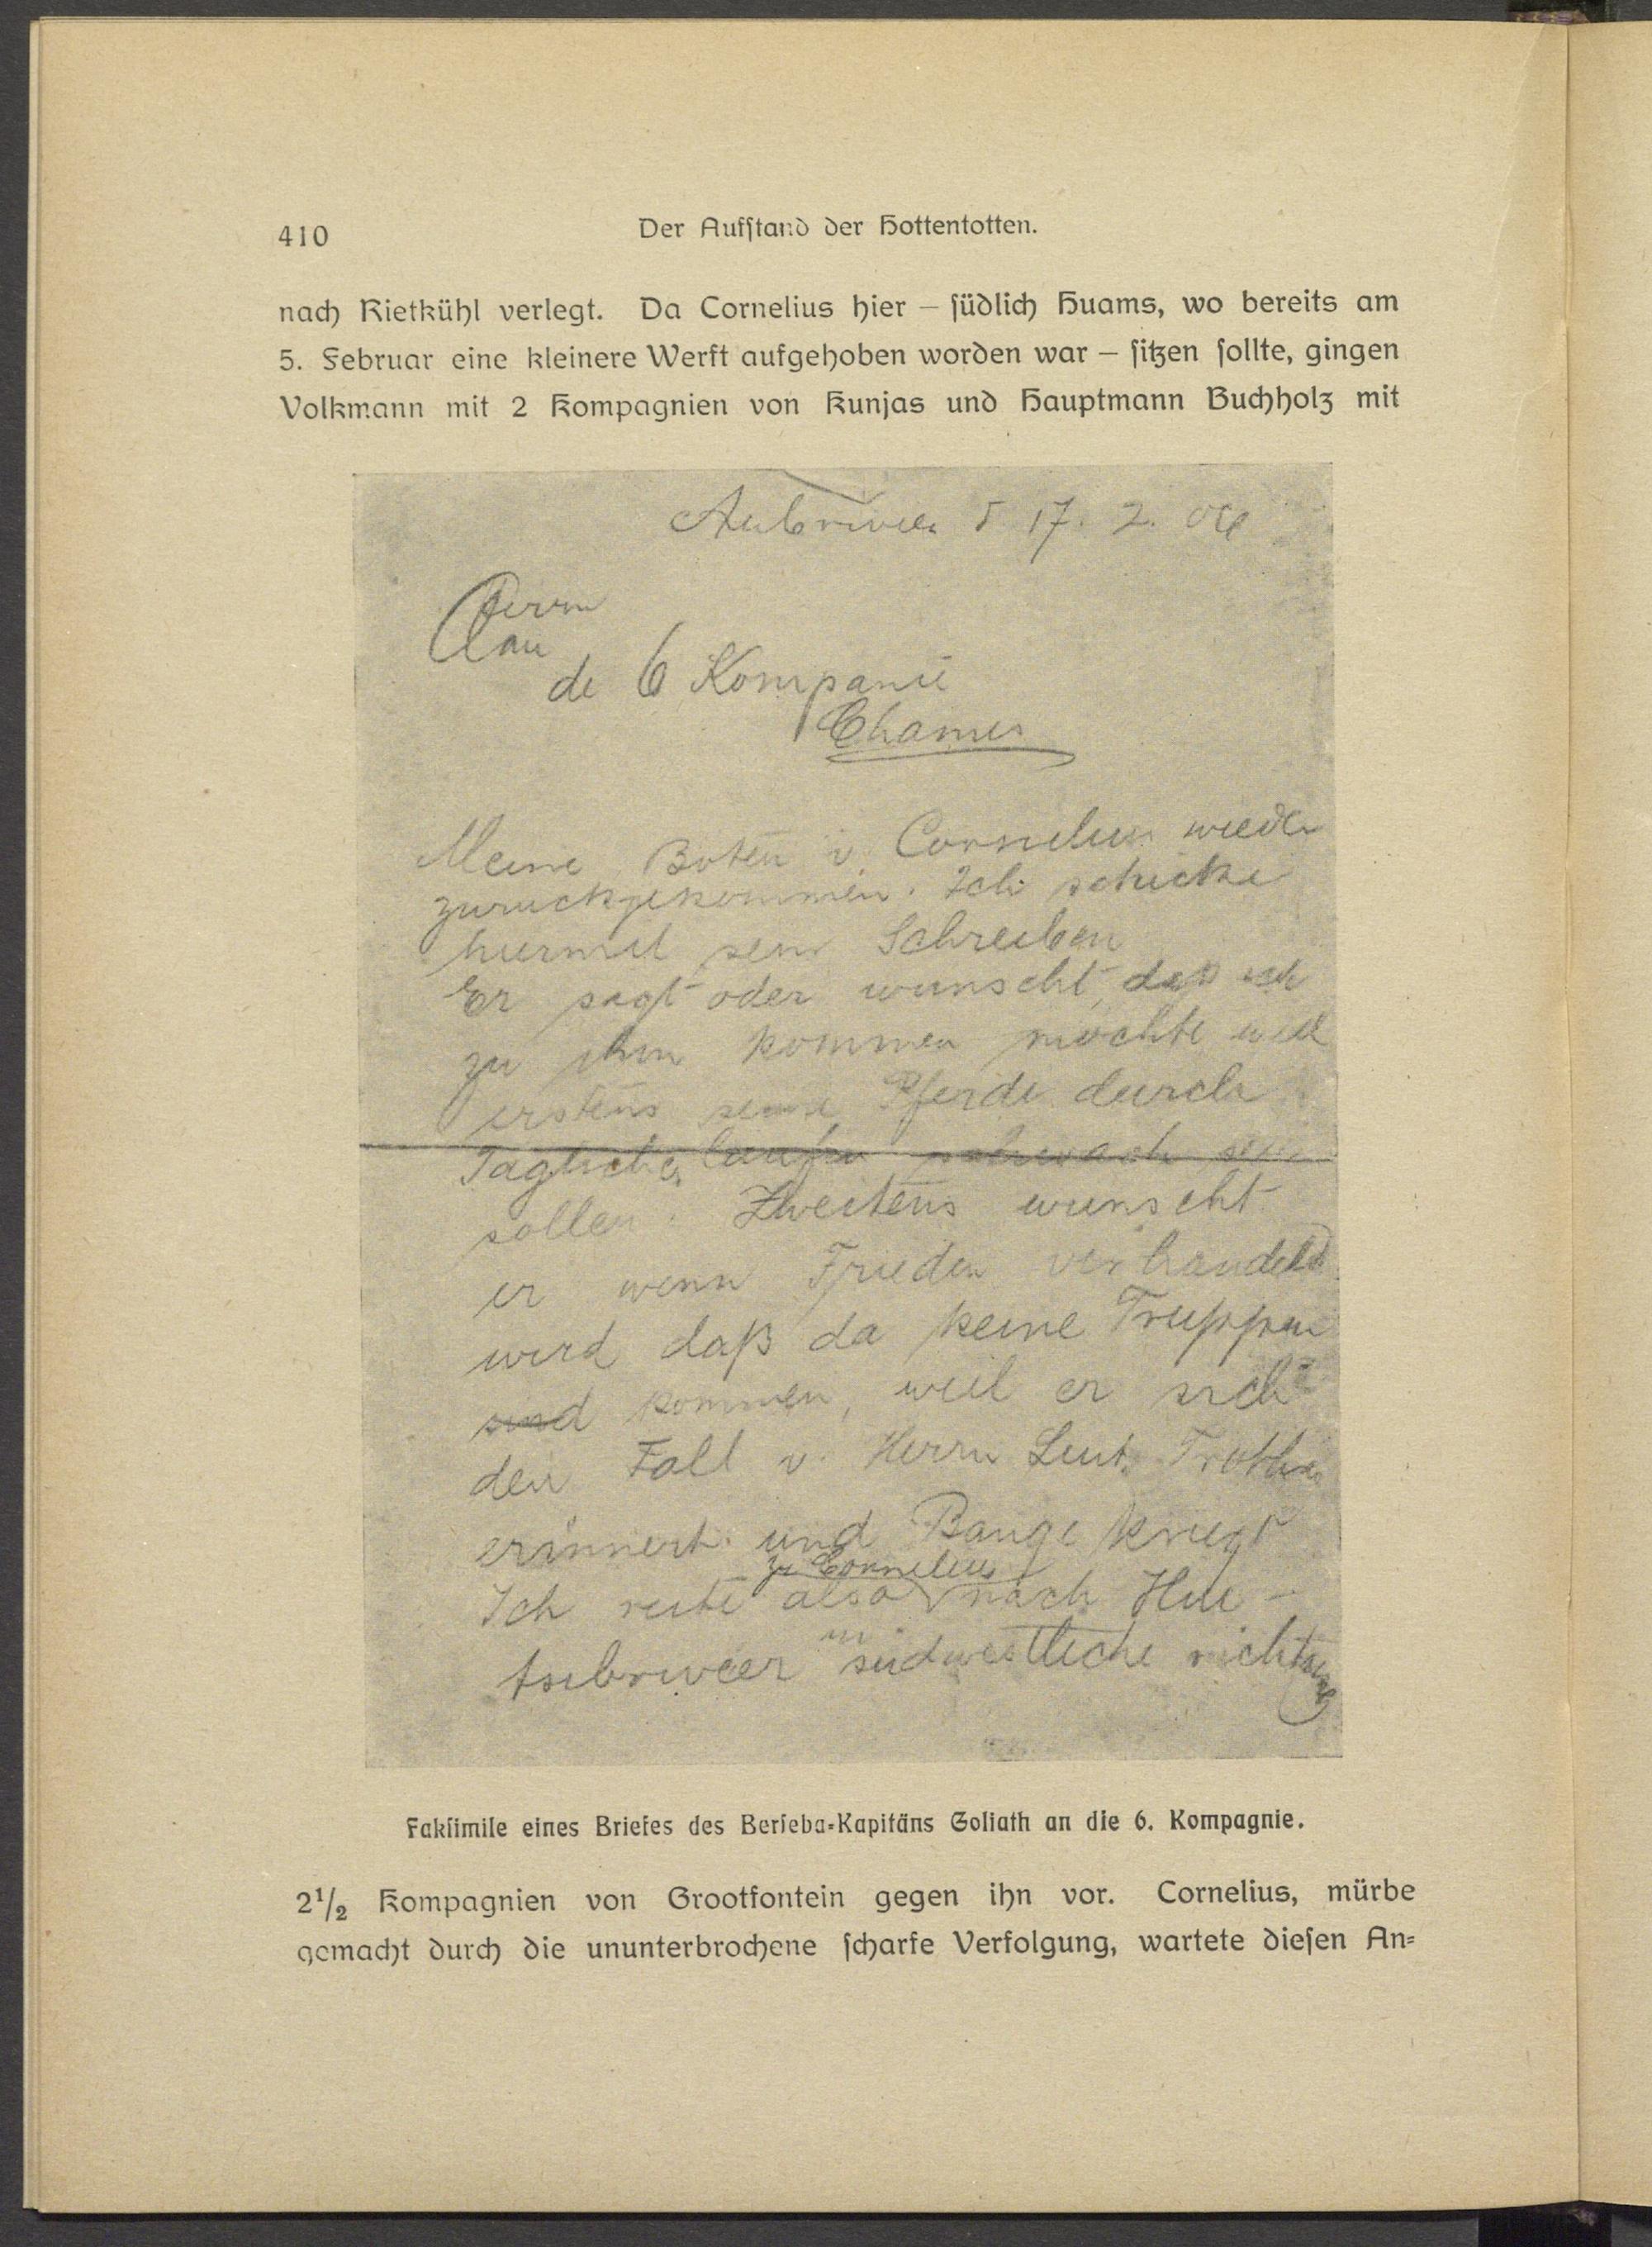 410
Der Aufſtand der Hottentotten.
nach Rietkühl verlegt. Da Cornelius hier – ſüdlich Huams, wo bereits am
5. Februar eine kleinere Werft aufgehoben worden war – ſitzen ſollte, gingen
Volkmann mit 2 Kompagnien von Kunjas und Hauptmann Buchholz mit
17. 2. 06
Herrn
de 6 Kompanie
Chamis
Meine Boten v. Cornelius wieder
zuruckgekommen. Ich schicke
hiermit sein Schreiben
Er sagt oder wunscht, daß ich
zu ihm kommen möchte weil
erstens seine Pferde durch
Tagliche laufen schwach sein
sollen. Zweitens wunscht
er wenn Frieden verhandelt
wird daß da keine Truppen
sind kommen, weil er sich
den Fall v. Herrn Leut. Trotha
erinnert und Bange kriegt
zu Cornelius
Ich reite also nach Hu-
in
tsibrivier südwestliche richtung
Fakſimile eines Briefes des Berſeba-Kapitäns Goliath an die 6. Kompagnie.
2¹/₂ Kompagnien von Grootfontein gegen ihn vor. Cornelius, mürbe
gemacht durch die ununterbrochene ſcharfe Verfolgung, wartete dieſen An-